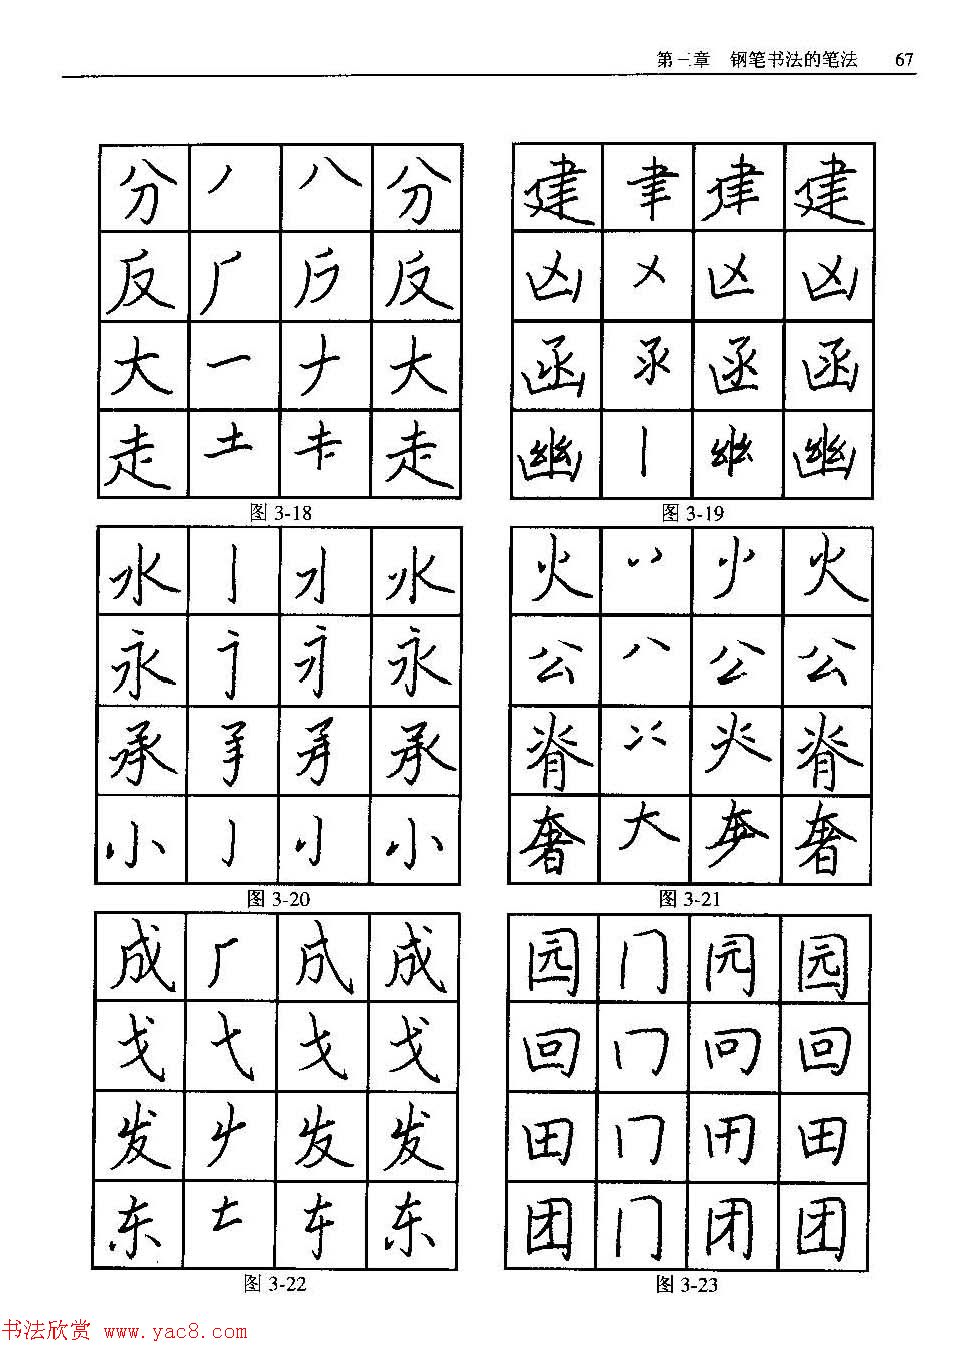 第三章 钢笔书法的笔法 67
分 丿 八 分
反 厂 反
大 一 ナ 大
走 土 走
图 3-18
建 聿 建
凶 乂 凶
函 函
幽 丨 幽
图 3-19
水 亅 水
永 永
承 承
小 亅 小
图 3-20
火 丷 火
公 八 公
脊 脊
奢 大 奢
图 3-21
成 厂 成 成
戈 弋 戈 戈
发 发 发
东 东
图 3-22
园 冂 园
回 冂 回
田 冂 用 田
团 冂 闭 团
图 3-23
书法欣赏 www.yac8.com